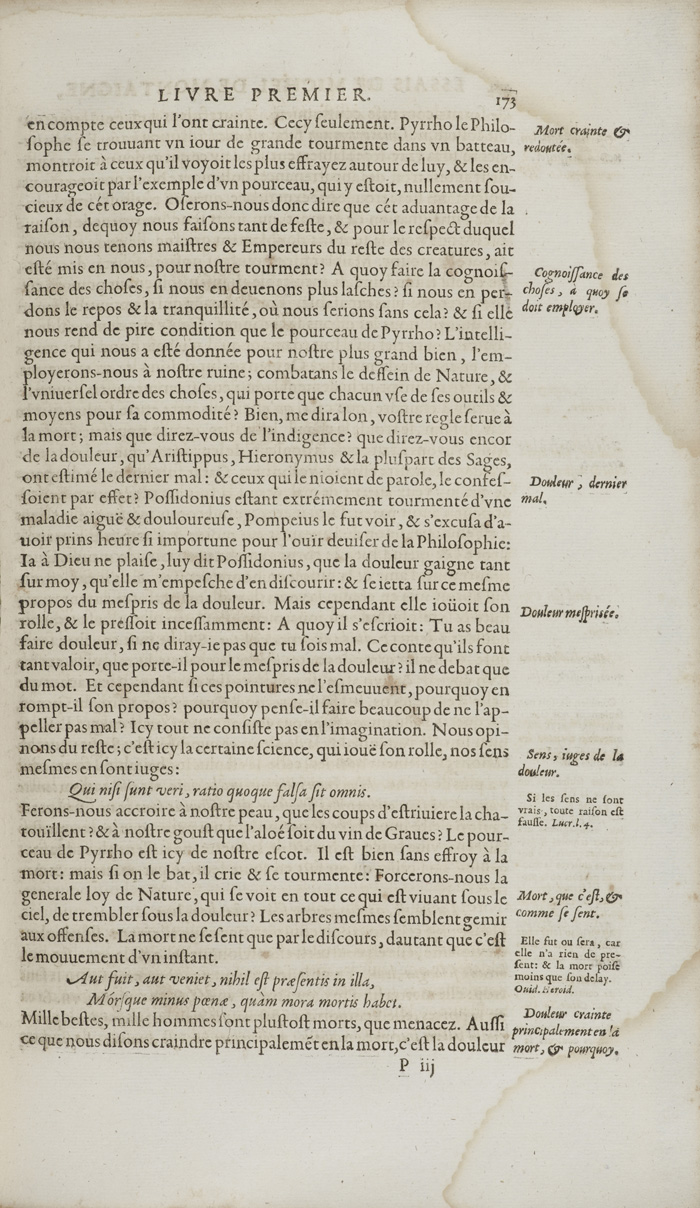 LIVRE PREMIER.
173
en compte ceux qui l'ont crainte. Cecy ſeulement. Pyrrho le Philo-
ſophe ſe trouuant vn iour de grande tourmente dans vn batteau,
montroit à ceux qu'il voyoit les plus effrayez autour de luy, & les en-
courageoit par l'exemple d'vn pourceau, qui y eſtoit, nullement ſou-
cieux de cét orage. Oſerons-nous donc dire que cét aduantage de la
raiſon, dequoy nous faiſons tant de feſte, & pour le reſpect duquel
nous nous tenons maiſtres & Empereurs du reſte des creatures, ait
eſté mis en nous, pour noſtre tourment? A quoy faire la cognoiſ-
ſance des choſes, ſi nous en deuenons plus laſches? ſi nous en per-
dons le repos & la tranquillité, où nous ſerions ſans cela? & ſi elle
nous rend de pire condition que le pourceau de Pyrrho? L'intelli-
gence qui nous a eſté donnée pour noſtre plus grand bien, l'em-
ployerons-nous à noſtre ruine; combatans le deſſein de Nature, &
l'vniuerſel ordre des choſes, qui porte que chacun vſe de ſes outils &
moyens pour ſa commodité? Bien, me dira lon, voſtre regle ſerue à
la mort; mais que direz-vous de l'indigence? que direz-vous encor
de la douleur, qu'Ariſtippus, Hieronymus & la pluſpart des Sages,
ont eſtimé le dernier mal: & ceux qui le nioient de parole, le confeſ-
ſoient par effet? Poſſidonius eſtant extrémement tourmenté d'vne
maladie aiguë & douloureuſe, Pompeius le fut voir, & s'excuſa d'a-
uoir prins heure ſi importune pour l'ouïr deuiſer de la Philoſophie:
Ia à Dieu ne plaiſe, luy dit Poſſidonius, que la douleur gaigne tant
ſur moy, qu'elle m'empeſche d'en diſcourir: & ſe ietta ſur ce meſme
propos du meſpris de la douleur. Mais cependant elle ioüoit ſon
rolle, & le preſſoit inceſſamment: A quoy il s'eſcrioit: Tu as beau
faire douleur, ſi ne diray-ie pas que tu ſois mal. Ce conte qu'ils font
tant valoir, que porte-il pour le meſpris de la douleur? il ne debat que
du mot. Et cependant ſi ces pointures ne l'eſmeuuent, pourquoy en
rompt-il ſon propos? pourquoy penſe-il faire beaucoup de ne l'ap-
peller pas mal? Icy tout ne conſiſte pas en l'imagination. Nous opi-
nons du reſte; c'eſt icy la certaine ſcience, qui iouë ſon rolle, nos ſens
meſmes en ſont iuges:
Qui niſi ſunt veri, ratio quoque falſa ſit omnis.
Ferons-nous accroire à noſtre peau, que les coups d'eſtriuiere la cha-
touïllent? & à noſtre gouſt que l'aloé ſoit du vin de Graues? Le pour-
ceau de Pyrrho eſt icy de noſtre eſcot. Il eſt bien ſans effroy à la
mort: mais ſi on le bat, il crie & ſe tourmente: Forcerons-nous la
generale loy de Nature, qui ſe voit en tout ce qui eſt viuant ſous le
ciel, de trembler ſous la douleur? Les arbres meſmes ſemblent gemir
aux offenſes. La mort ne ſe ſent que par le diſcours, dautant que c'eſt
le mouuement d'vn inſtant.
Aut fuit, aut veniet, nihil eſt præſentis in illa,
Mórſque minus pœnæ, quàm mora mortis habet.
Mille beſtes, mille hommes ſont pluſtoſt morts, que menacez. Auſſi
ce que nous diſons craindre principalemẽt en la mort, c'eſt la douleur
P iij
Mort crainte &
redoutée.
Cognoiſſance des
choſes, à quoy ſe
doit employer.
Douleur, dernier
mal.
Douleur meſpriſée.
Sens, iuges de la
douleur.
Si les ſens ne ſont
vrais, toute raiſon eſt
fauſſe. Lucr. l. 4.
Mort, que c'eſt, &
comme ſe ſent.
Elle fut ou ſera, car
elle n'a rien de pre-
ſent: & la mort poiſe
moins que ſon delay.
Ouid. Heroid.
Douleur crainte
principalement en la
mort, & pourquoy.